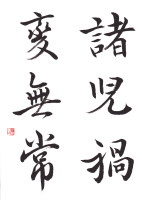 諸児禍
変無常